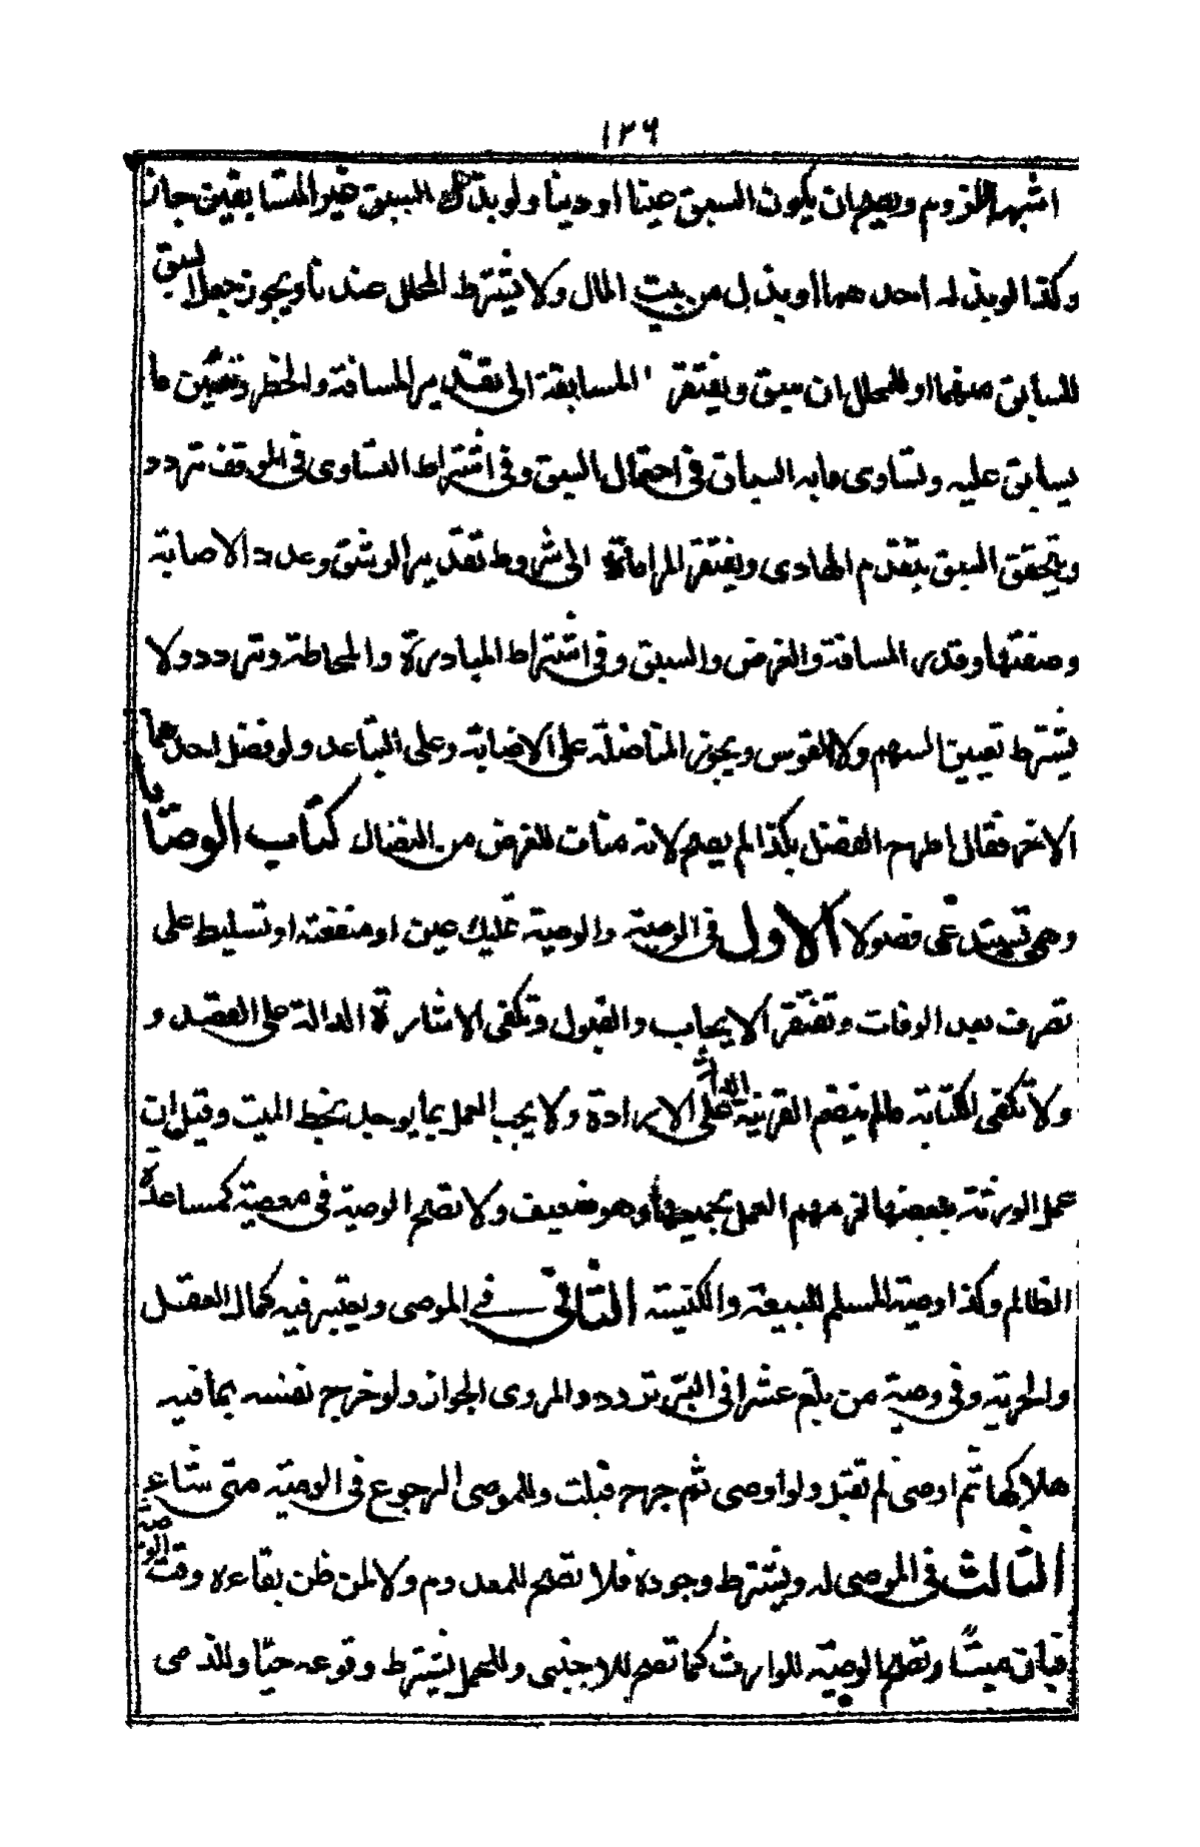 ١٢٦
اشبهه اللزوم ويصح ان يكون السبق عينا او دينا ولو بذل السبق غير المتسابقين جاز
وكذا لو بذله احدهما او بذل من بيت المال ولا يشترط المحلل عندنا ويجوز جعل السبق
للسابق منهما او للمحلل ان سبق ويفتقر المسابقة الى تقدير المسافة والخطر وتعيين ما
يسابق عليه وتساوى ما به السباق فى احتمال السبق وفى اشتراط التساوى فى الموقف تردد
ويتحقق السبق بتقدم الهادى ويفتقر المراماة الى شروط تقدير الرشق وعدد الاصابة
وصفتها وقدر المسافة والغرض والسبق وفى اشتراط المبادرة والمحاطة تردد ولا
يشترط تعيين السهم ولا القوس ويجوز المناضلة على الاصابة وعلى التباعد ولو فضل احدهما
الاخر فقال اطرح الفضل بكذا لم يصح لانه مناف للغرض من النضال كتاب الوصايا
وهى تستدعى فصولا الاول فى الوصية والوصية تمليك عين او منفعة او تسليط على
تصرف بعد الوفات وتفتقر الا يجاب والقبول وتكفى الاشارة الدالة على العقد و
ولا تكفى الكتابة مالم ينضم القرينة الدالة على الارادة ولا يجب العمل بما يوجد بخط الميت وقيل ان
عمل الورثة ببعضها لزمهم العمل بجميعها وهو ضعيف ولا تصح الوصية فى معصية كمساعدة
الظالم وكذا وصية المسلم للبيعة والكنيسة الثانى فى الموصى ويعتبر فيه كمال العقل
والحرية وفى وصية من بلغ عشرا فى البر تردد والمروى الجواز ولو جرح نفسه بما فيه
هلاكها ثم اوصى لم تقبل ولو اوصى ثم جرح قبلت وللموصى الرجوع فى الوصية متى شاء
الثالث فى الموصى له ويشترط وجوده فلا تصح للمعدوم ولا لمن ظن بقاءه وقت الوصية
فبان ميتا وتصح الوصية للوارث كما تصح للاجنبى وللحمل بشرط وقوعه حيا وللذمى